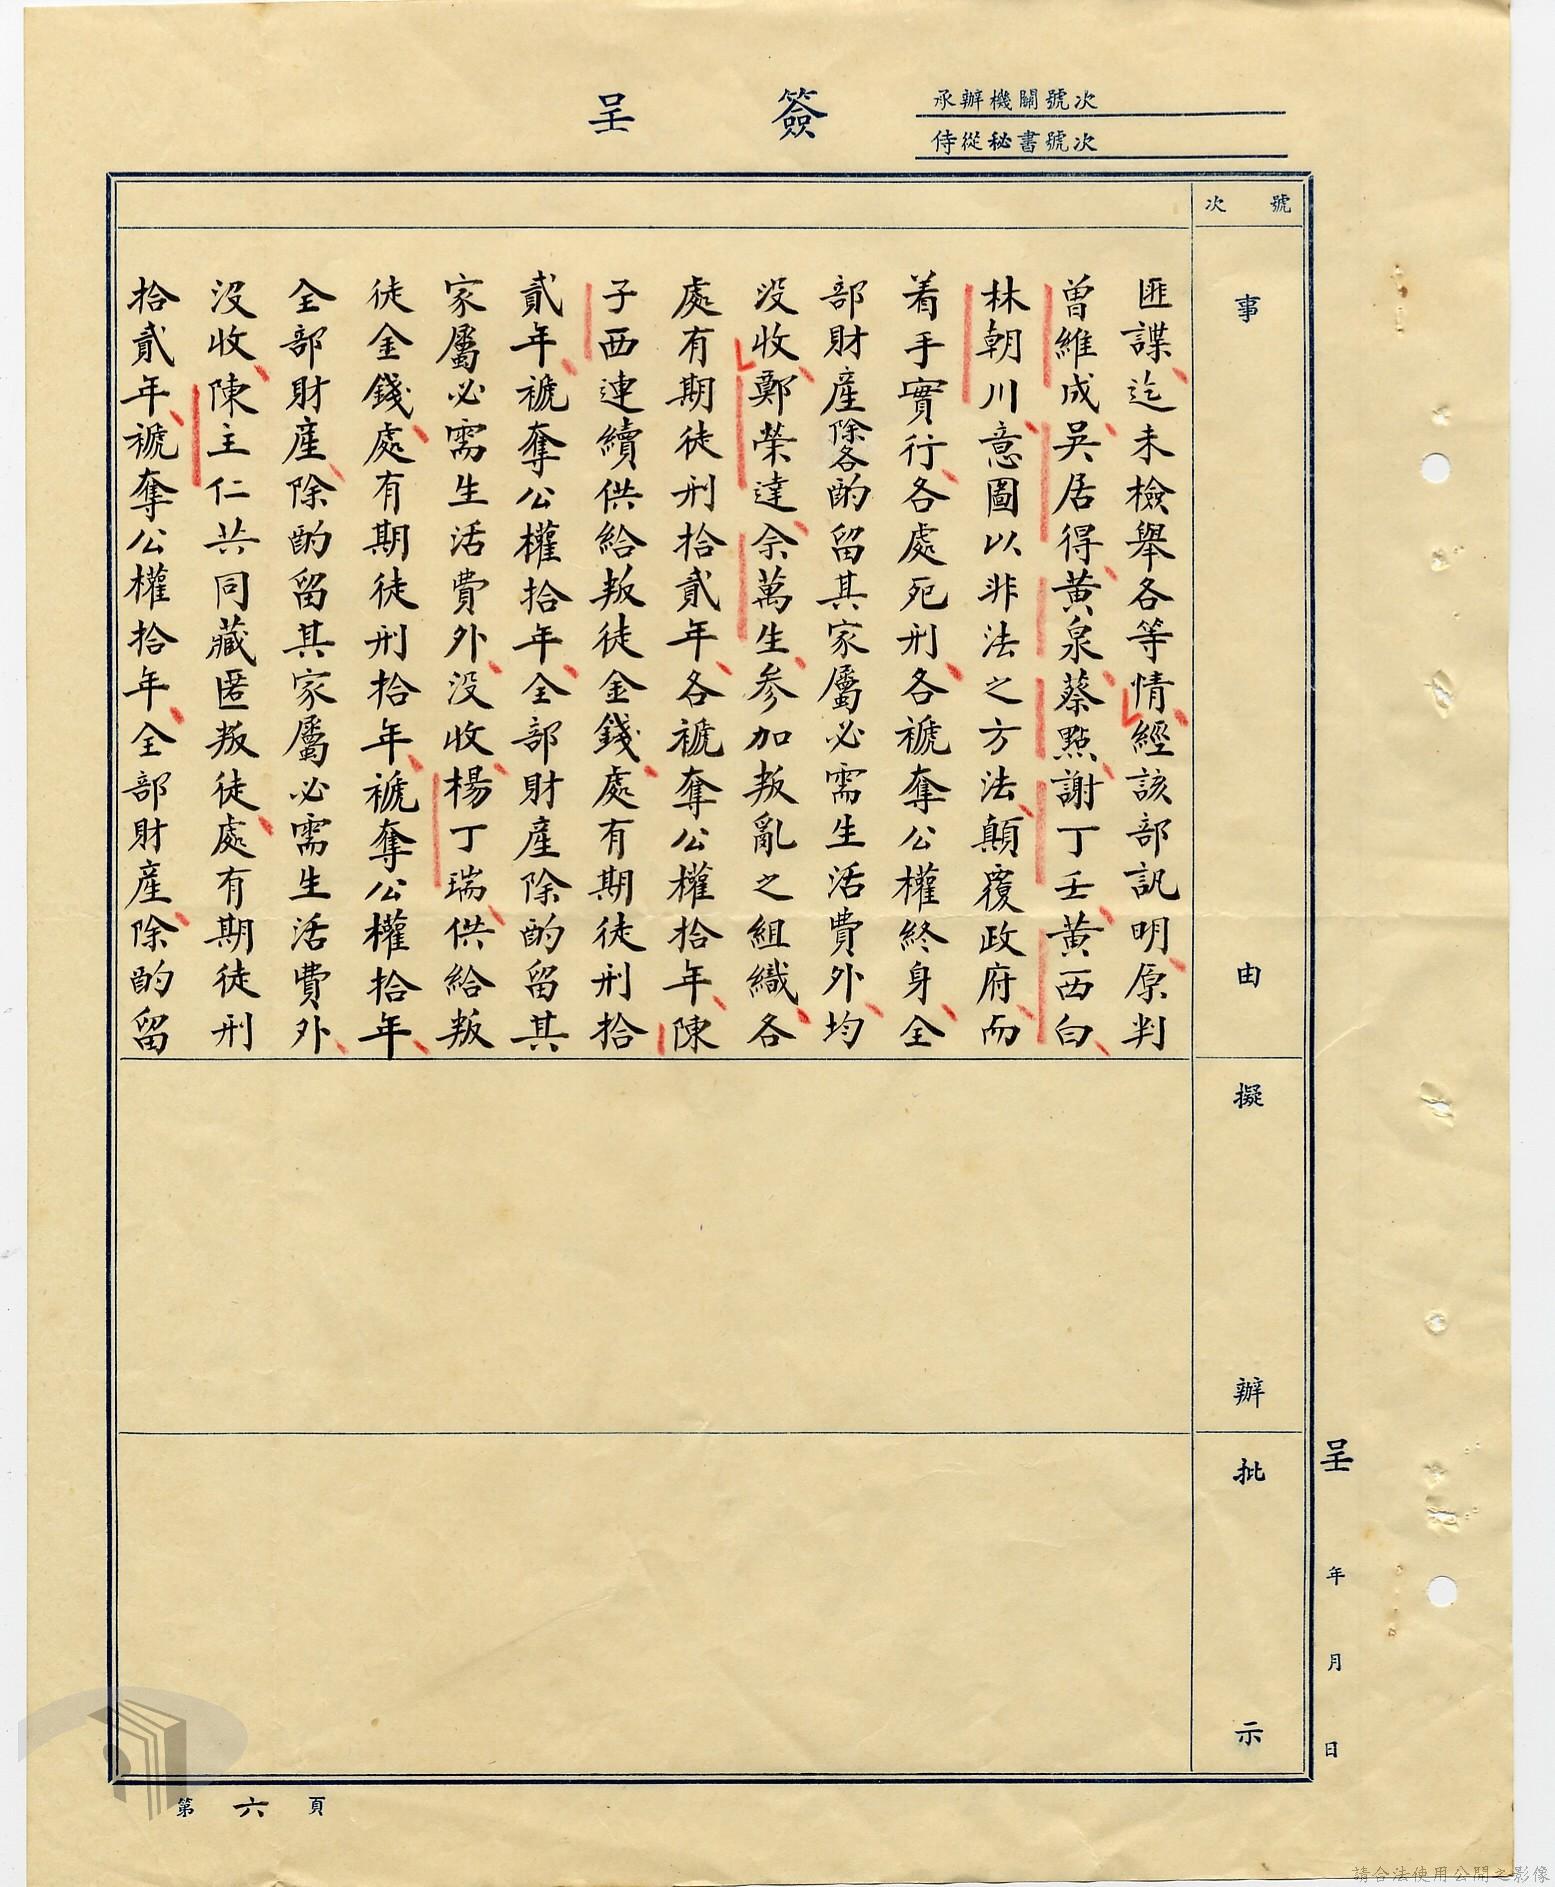 簽呈
承辦機關號次
侍從秘書號次
號次
事由
擬辦
批示
匪諜迄未檢舉各等情經該部訊明原判
曾維成吳居得黃泉蔡點謝丁壬黃西白
林朝川意圖以非法之方法顛覆政府而
着手實行各處死刑各褫奪公權終身全
部財產除各酌留其家屬必需生活費外均
沒收鄭榮達余萬生參加叛亂之組織各
處有期徒刑拾貳年各褫奪公權拾年陳
子西連續供給叛徒金錢處有期徒刑拾
貳年褫奪公權拾年全部財產除酌留其
家屬必需生活費外沒收楊丁瑞供給叛
徒金錢處有期徒刑拾年褫奪公權拾年
全部財產除酌留其家屬必需生活費外
沒收陳主仁共同藏匿叛徒處有期徒刑
拾貳年褫奪公權拾年全部財產除酌留
呈 年 月 日
第六頁
請合法使用公開之影像